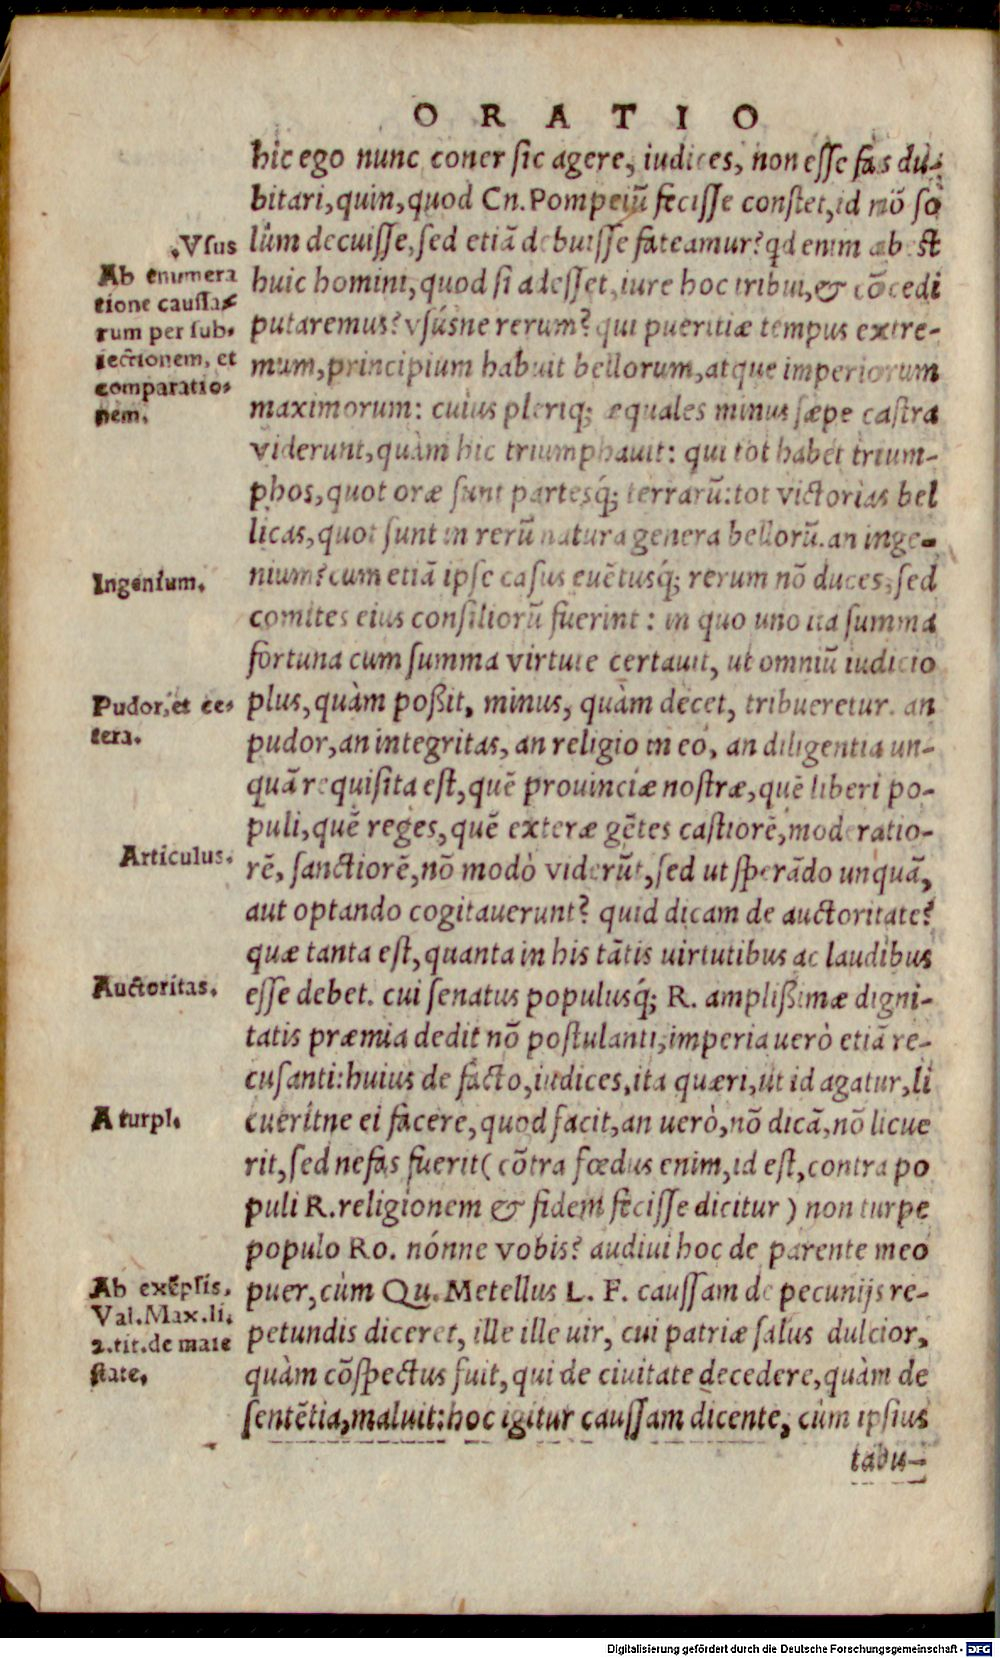 ORATIO
hic ego nunc coner sic agere, iudices, non esse fas du-
bitari, quin, quod Cn. Pompeiũ fecisse constet, id nõ so
lùm decuisse, sed etiã debuisse fateamur? qd enim abest
huic homini, quod si adesset, iure hoc tribui, & cõcedi
putaremus? vsúsne rerum? qui pueritiæ tempus extre-
mum, principium habuit bellorum, atque imperiorum
maximorum: cuius pleriq; æquales minus sæpe castra
viderunt, quàm hic triumphauit: qui tot habet trium-
phos, quot oræ sunt partesq́; terrarũ: tot victorias bel
licas, quot sunt in rerũ natura genera bellorũ. an inge-
nium? cum etiã ipse casus euẽtusq́; rerum nõ duces, sed
comites eius consiliorũ fuerint: in quo uno ita summa
fortuna cum summa virtute certauit, ut omniũ iudicio
plus, quàm poßit, minus, quàm decet, tribueretur. an
pudor, an integritas, an religio in eo, an diligentia un-
quã requisita est, quẽ prouinciæ nostræ, quẽ liberi po-
puli, quẽ reges, quẽ exteræ gẽtes castiorẽ, moderatio-
rẽ, sanctiorẽ, nõ modò viderũt, sed ut sperãdo unquã,
aut optando cogitauerunt? quid dicam de auctoritate?
quæ tanta est, quanta in his tãtis uirtutibus ac laudibus
esse debet. cui senatus populusq́; R. amplißimæ digni-
tatis præmia dedit nõ postulanti, imperia uerò etiã re-
cusanti: huius de facto, iudices, ita quæri, ut id agatur, li
cuerítne ei facere, quod facit, an uerò, nõ dicã, nõ licue
rit, sed nefas fuerit (cõtra fœdus enim, id est, contra po
puli R. religionem & fidem fecisse dicitur) non turpe
populo Ro. nónne vobis? audiui hoc de parente meo
puer, cùm Qu. Metellus L. F. caussam de pecunijs re-
petundis diceret, ille ille uir, cui patriæ salus dulcior,
quàm cõspectus fuit, qui de ciuitate decedere, quàm de
sentẽtia, maluit: hoc igitur caussam dicente, cùm ipsius
tabu-
.Vsus
Ab enumera
tione caussa-
rum per sub-
iectionem, et
comparatio-
nem.
Ingenium.
Pudor, et ce-
tera.
Articulus.
Auctoritas.
A turpi.
Ab exẽplis.
Val. Max. li.
2. tit. de maie
state.
Digitalisierung gefördert durch die Deutsche Forschungsgemeinschaft - DFG